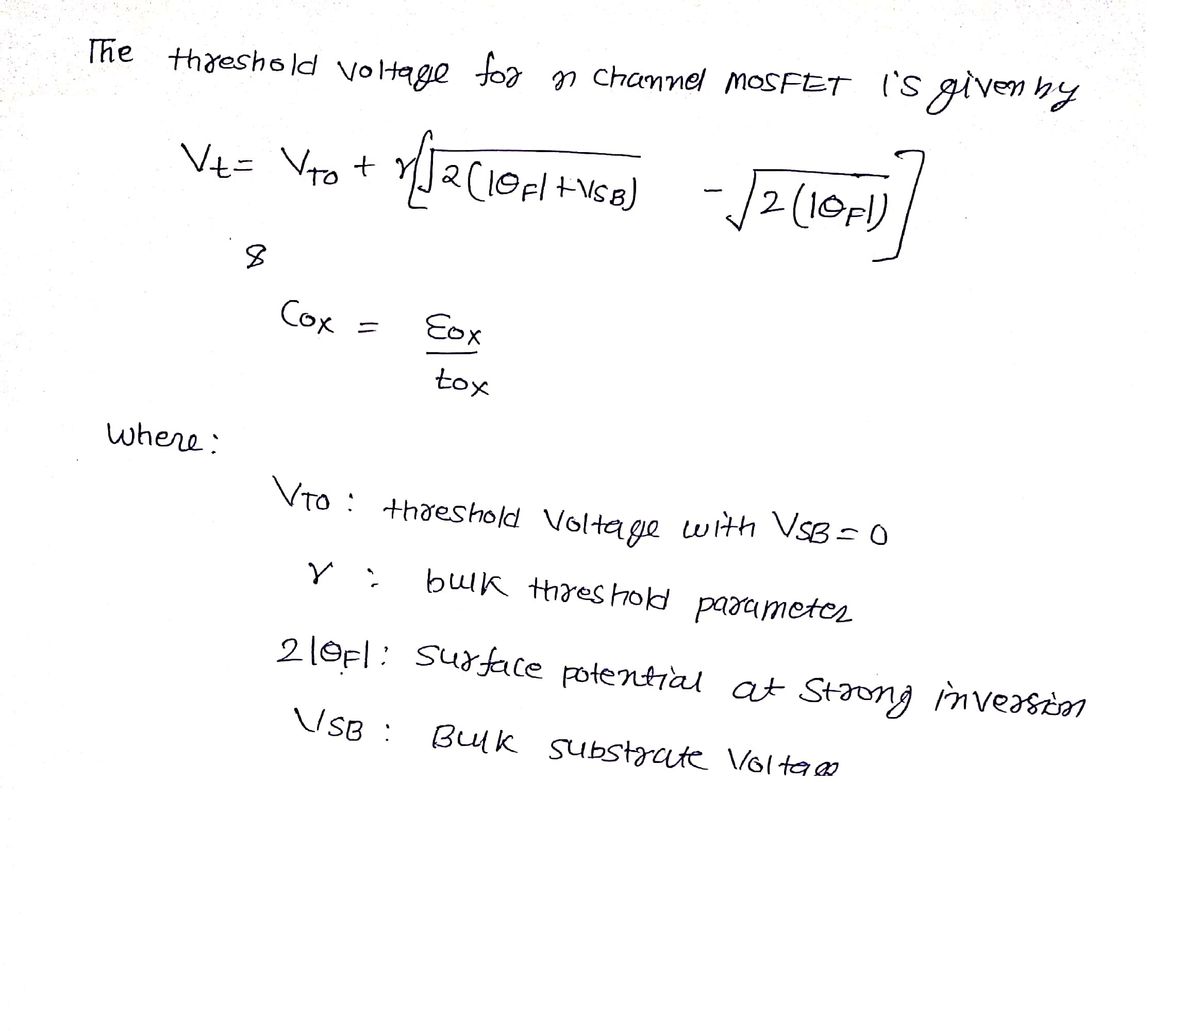 The threshold voltage for n channel MOSFET is given by
Vt = VTO + γ[√2(|ΘF| + VSB) - √2(|ΘF|)]
&
Cox = εox
tox
Where:
VTO : threshold Voltage with VSB = 0
γ : bulk threshold parameter
2|ΘF| : surface potential at strong inversion
VSB : Bulk substrate